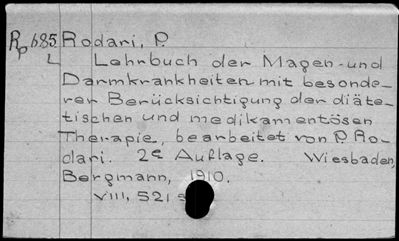 Rp 685 Rodari, P.
L Lehrbuch der Magen- und
Darmkrankheiten mit besonde-
rer Berücksichtigung der diäte-
tischen und medikamentösen
Therapie, bearbeitet von P. Ro-
dari. 2e Auflage. Wiesbaden,
Bergmann, 1910.
VIII, 521